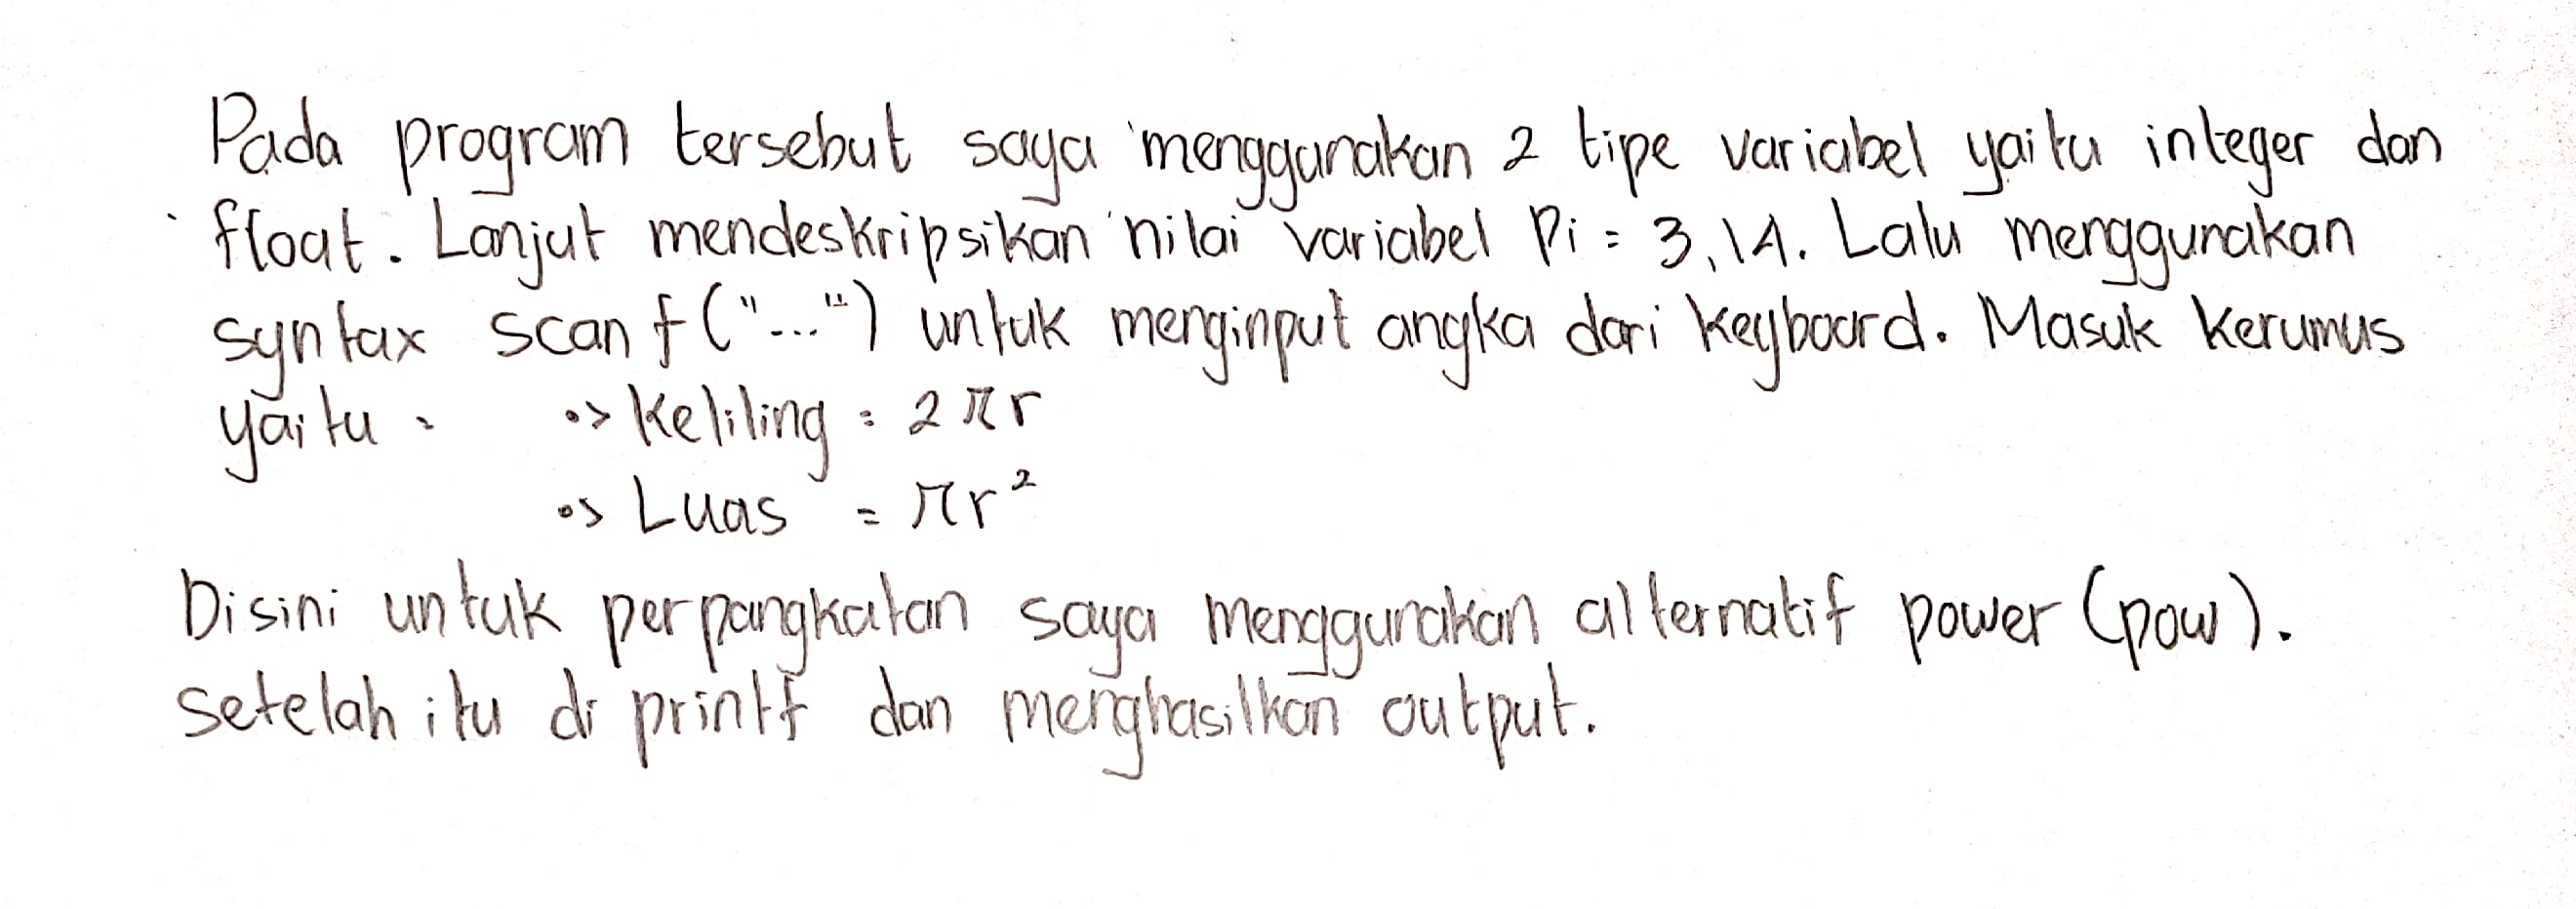 Pada program tersebut saya menggunakan 2 tipe variabel yaitu integer dan
float. Lanjut mendeskripsikan nilai variabel Pi = 3,14. Lalu menggunakan
syntax scanf ("...") untuk menginput angka dari keyboard. Masuk kerumus
yaitu : •> Keliling = 2 π r
•> Luas = π r²
Disini untuk perpangkatan saya menggunakan alternatif power (pow).
setelah itu di printf dan menghasilkan output.